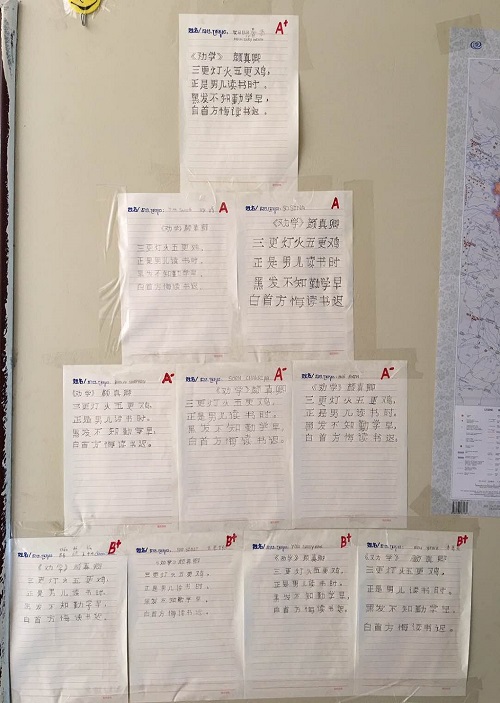 A+
《劝学》 颜真卿
三更灯火五更鸡,
正是男儿读书时。
黑发不知勤学早,
白首方悔读书迟。
A
《劝学》颜真卿
三更灯火五更鸡,
正是男儿读书时。
黑发不知勤学早,
白首方悔读书迟。
A
《劝学》颜真卿
三更灯火五更鸡
正是男儿读书时
黑发不知勤学早
白首方悔读书迟
A-
《劝学》颜真卿
三更灯火五更鸡,
正是男儿读书时。
黑发不知勤学早,
白首方悔读书迟。
A-
《劝学》颜真卿
三更灯火五更鸡,
正是男儿读书时。
黑发不知勤学早,
白首方悔读书迟。
A-
《劝学》颜真卿
三更灯火五更鸡,
正是男儿读书时。
黑发不知勤学早,
白首方悔读书迟。
B+
《劝学》颜真卿
三更灯火五更鸡,
正是男儿读书时。
黑发不知勤学早,
白首方悔读书迟。
B+
《劝学》颜真卿
三更灯火五更鸡,
正是男儿读书时。
黑发不知勤学早,
白首方悔读书迟。
B+
《劝学》颜真卿
三更灯火五更鸡,
正是男儿读书时。
黑发不知勤学早,
白首方悔读书迟。
B+
《劝学》 颜真卿
三更灯火五更鸡。
正是男儿读书时。
黑发不知勤学早,
白首方悔读书迟。